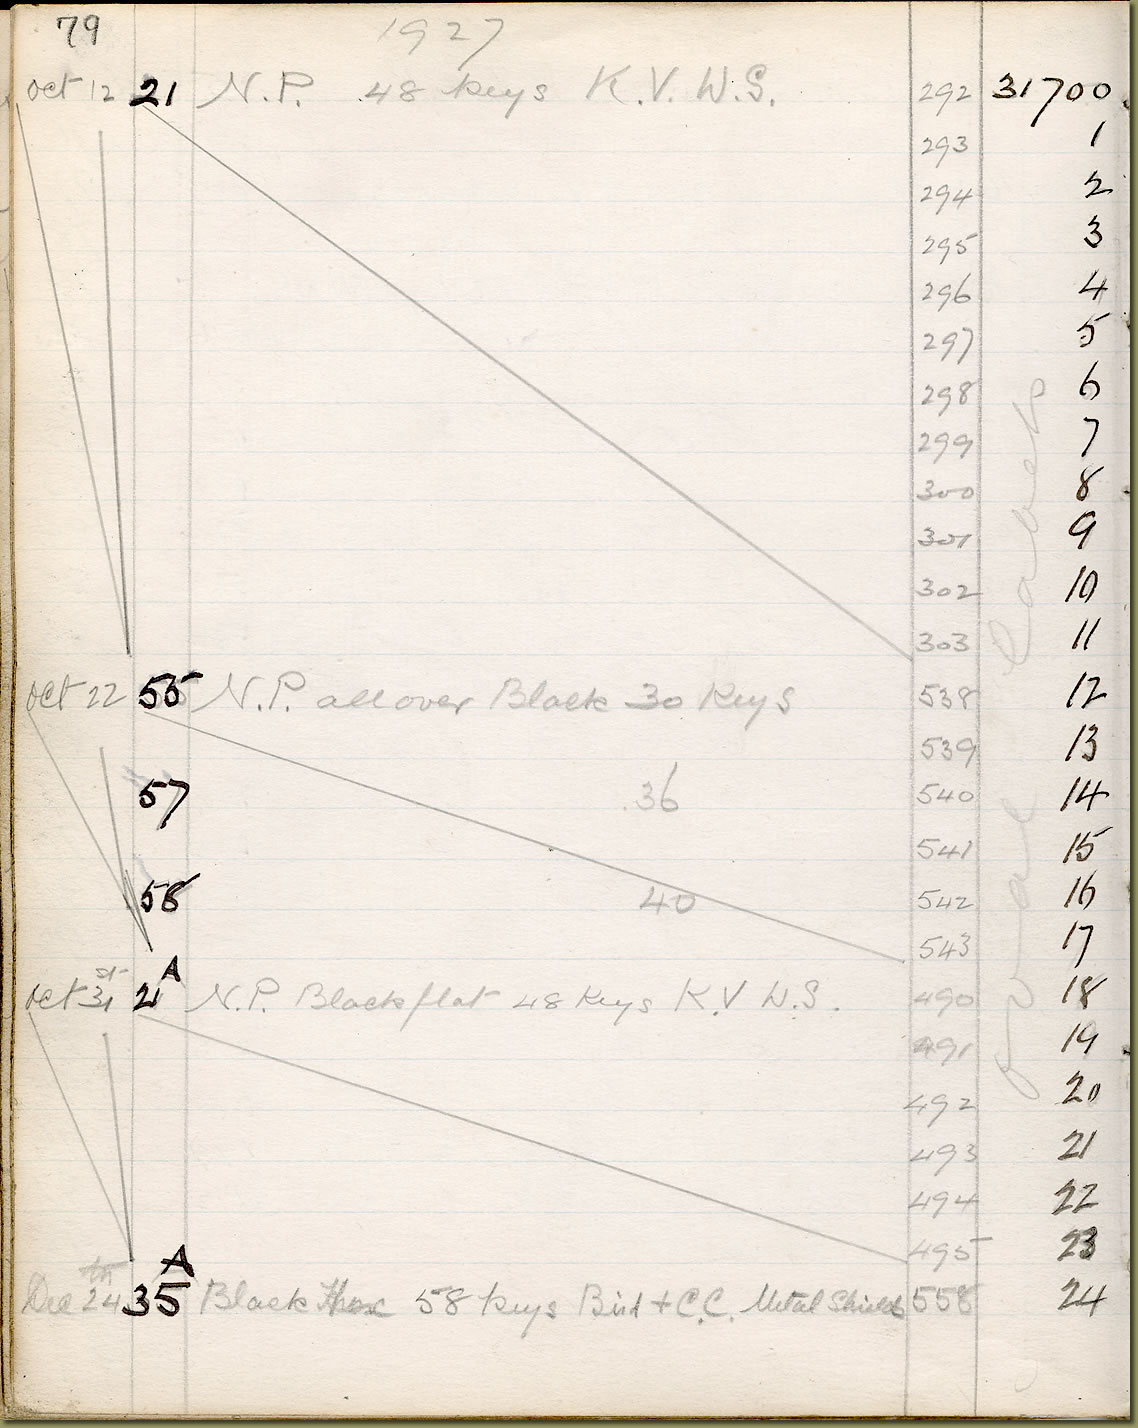 79
1927
Oct 12 21 N.P. 48 Keys K.V. W.S. 292 31700
293 1
294 2
295 3
296 4
297 5
298 6
299 7
300 8
301 9
302 10
303 11
Oct 22 55 N.P. all over Black 30 Keys 538 12
539 13
57 36 540 14
541 15
58 40 542 16
543 17
Oct 31st 21A N.P. Black flat 48 Keys K.V W.S. 490 18
491 19
492 20
493 21
494 22
495 23
Dec 24th 35A Black 58 Keys Bird + C.C. Metal Shields 558 24
oval labels